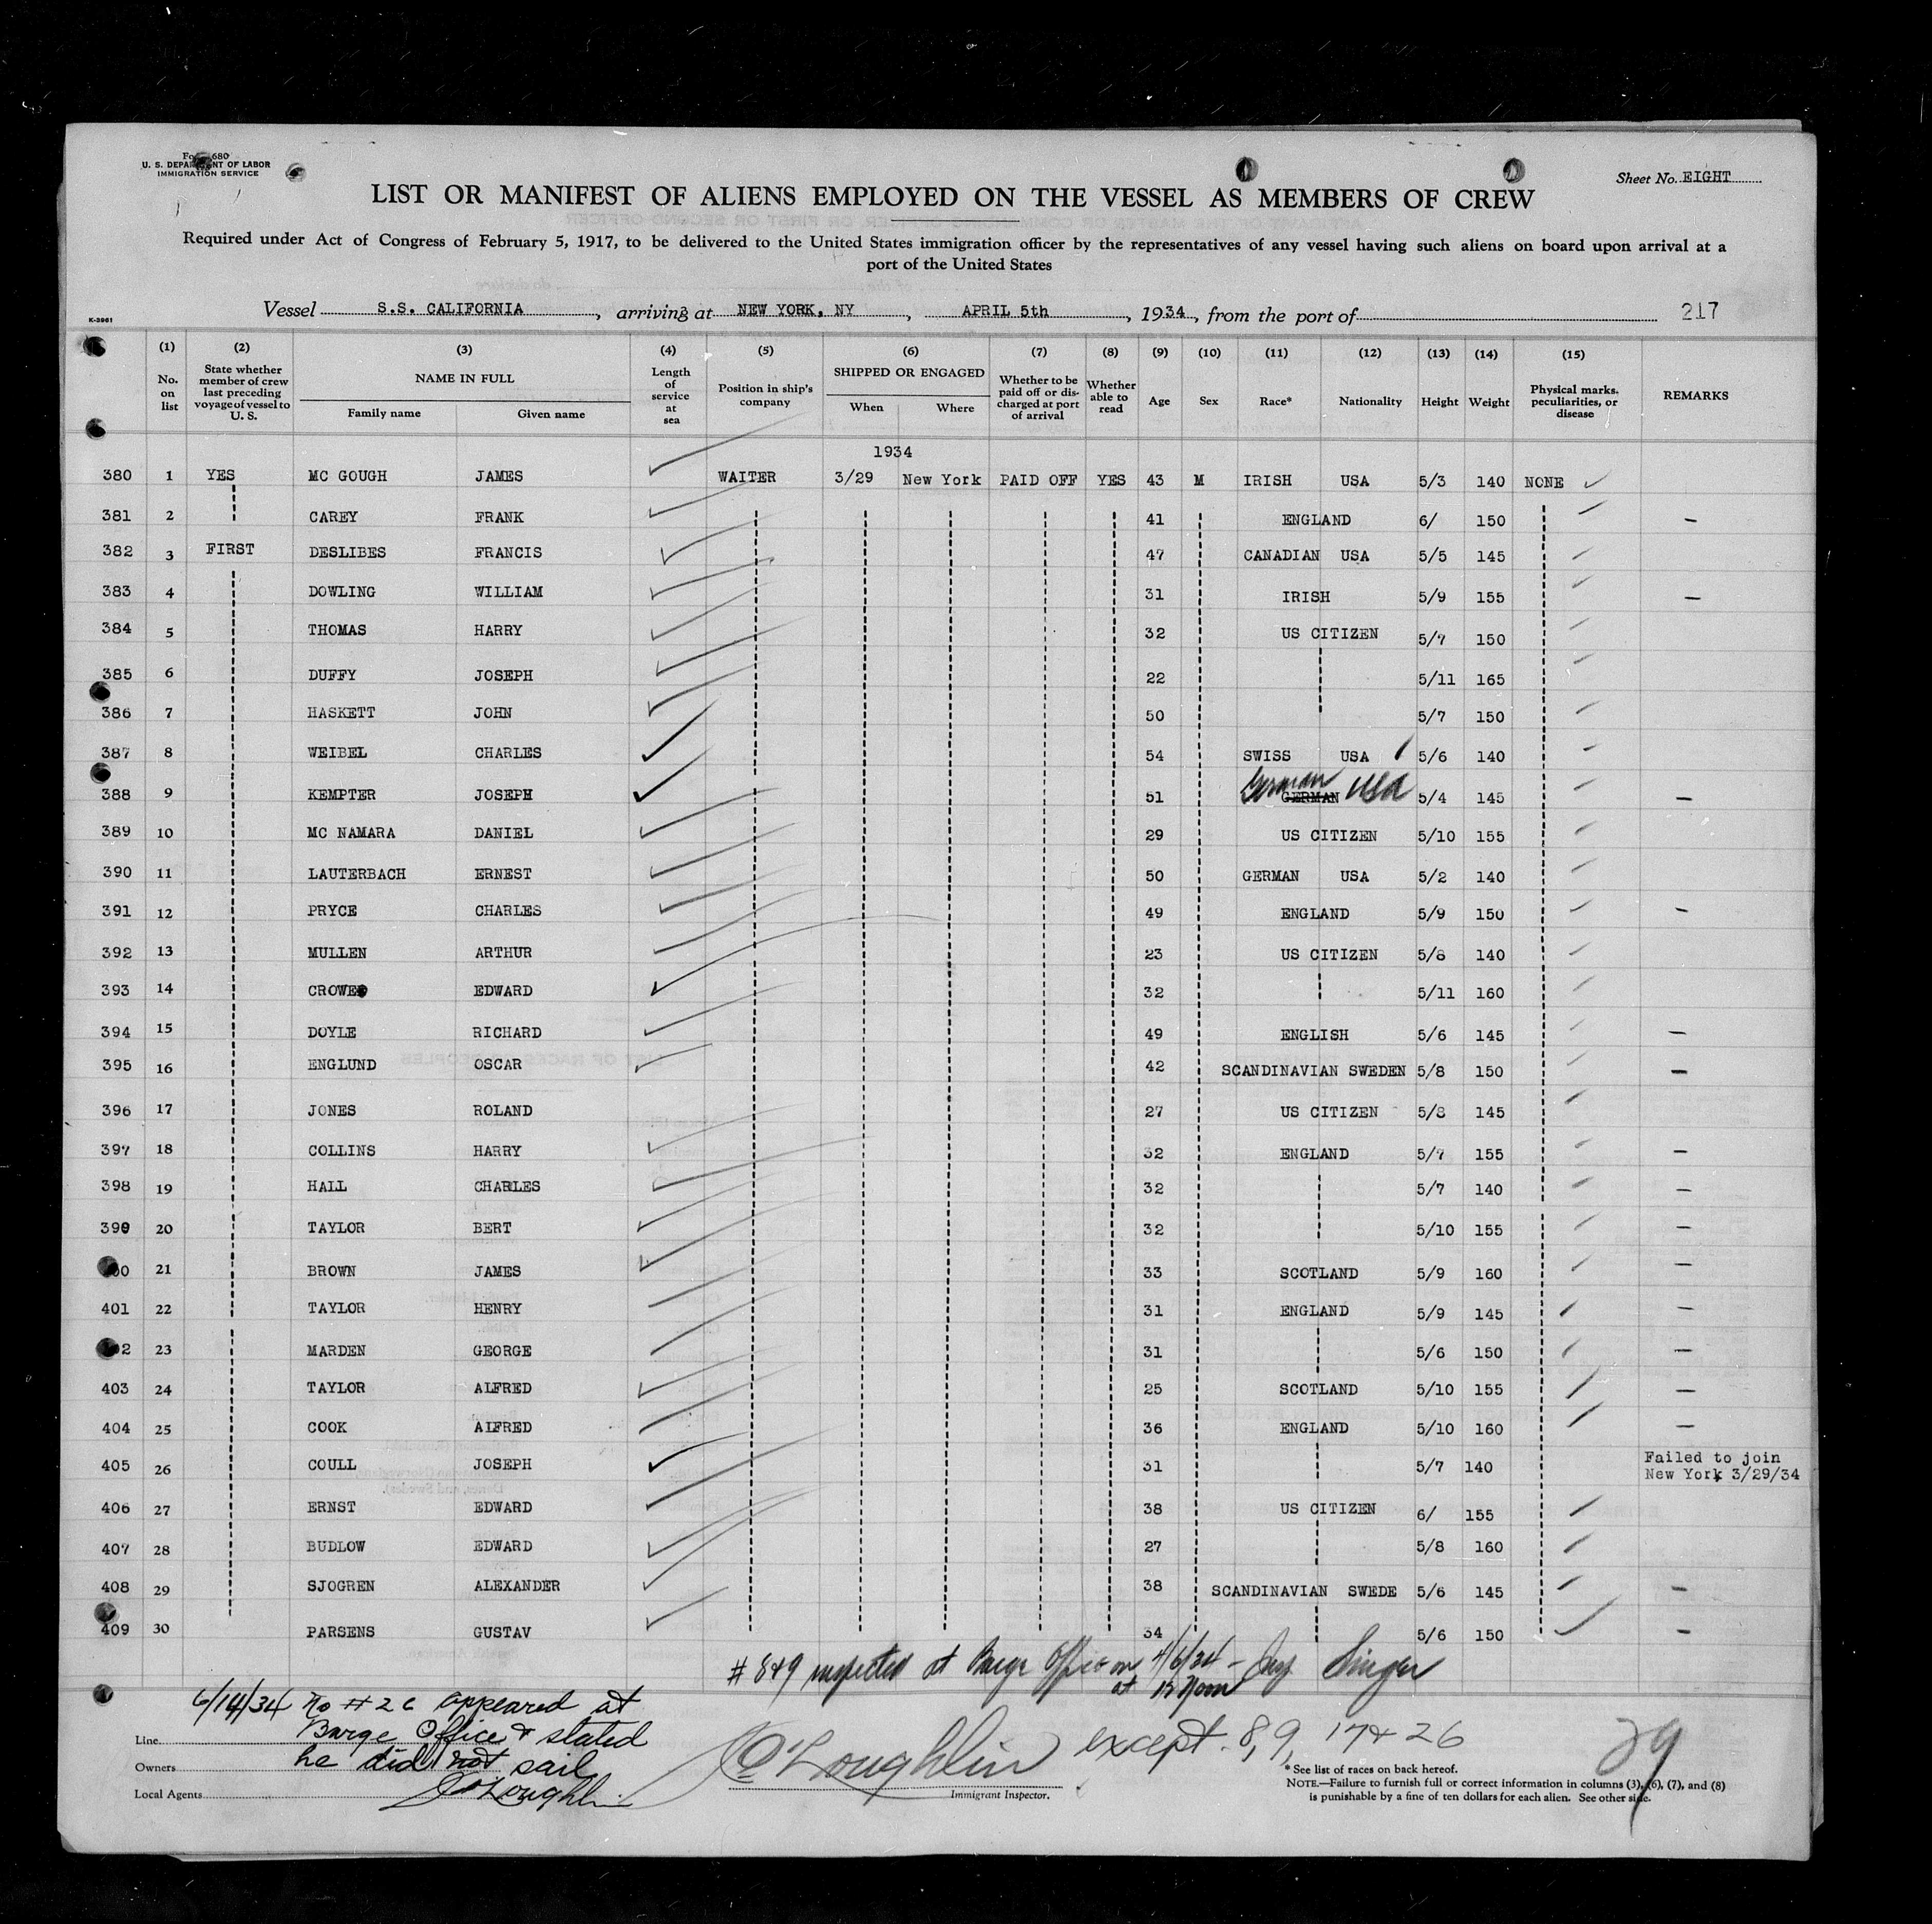 Form 680
U. S. DEPARTMENT OF LABOR
IMMIGRATION SERVICE
Sheet No. EIGHT
LIST OR MANIFEST OF ALIENS EMPLOYED ON THE VESSEL AS MEMBERS OF CREW
Required under Act of Congress of February 5, 1917, to be delivered to the United States immigration officer by the representatives of any vessel having such aliens on board upon arrival at a
port of the United States
Vessel S.S. CALIFORNIA, arriving at NEW YORK, NY, APRIL 5th, 1934, from the port of 217
K-3961
(1) No. on list (2) State whether member of crew last preceding voyage of vessel to U. S. (3) NAME IN FULL Family name Given name (4) Length of service at sea (5) Position in ship's company (6) SHIPPED OR ENGAGED When Where (7) Whether to be paid off or discharged at port of arrival (8) Whether able to read (9) Age (10) Sex (11) Race* (12) Nationality (13) Height (14) Weight (15) Physical marks, peculiarities, or disease REMARKS
1934
380 1 YES MC GOUGH JAMES WAITER 3/29 New York PAID OFF YES 43 M IRISH USA 5/3 140 NONE
381 2 CAREY FRANK 41 ENGLAND 6/ 150 —
382 3 FIRST DESLIBES FRANCIS 47 CANADIAN USA 5/5 145
383 4 DOWLING WILLIAM 31 IRISH 5/9 155 —
384 5 THOMAS HARRY 32 US CITIZEN 5/7 150
385 6 DUFFY JOSEPH 22 5/11 165
386 7 HASKETT JOHN 50 5/7 150
387 8 WEIBEL CHARLES 54 SWISS USA 5/6 140
388 9 KEMPTER JOSEPH 51 German GERMAN USA 5/4 145 —
389 10 MC NAMARA DANIEL 29 US CITIZEN 5/10 155
390 11 LAUTERBACH ERNEST 50 GERMAN USA 5/2 140
391 12 PRYCE CHARLES 49 ENGLAND 5/9 150 —
392 13 MULLEN ARTHUR 23 US CITIZEN 5/8 140
393 14 CROWE EDWARD 32 5/11 160
394 15 DOYLE RICHARD 49 ENGLISH 5/6 145 —
395 16 ENGLUND OSCAR 42 SCANDINAVIAN SWEDEN 5/8 150 —
396 17 JONES ROLAND 27 US CITIZEN 5/8 145
397 18 COLLINS HARRY 32 ENGLAND 5/7 155 —
398 19 HALL CHARLES 32 5/7 140 —
399 20 TAYLOR BERT 32 5/10 155 —
21 BROWN JAMES 33 SCOTLAND 5/9 160 —
401 22 TAYLOR HENRY 31 ENGLAND 5/9 145 —
2 23 MARDEN GEORGE 31 5/6 150 —
403 24 TAYLOR ALFRED 25 SCOTLAND 5/10 155 —
404 25 COOK ALFRED 36 ENGLAND 5/10 160 —
405 26 COULL JOSEPH 31 5/7 140 Failed to join New York 3/29/34
406 27 ERNST EDWARD 38 US CITIZEN 6/ 155
407 28 BUDLOW EDWARD 27 5/8 160
408 29 SJOGREN ALEXANDER 38 SCANDINAVIAN SWEDE 5/6 145 —
409 30 PARSENS GUSTAV 34 5/6 150 —
# 8 & 9 inspected at Barge Office on 4/6/34 — Singer
at 12 Noon
6/14/34 No # 26 appeared at
Barge Office & stated
he did not sail
O'Loughlin
O'Loughlin except 8, 9, 17 & 26
29
Line
Owners
Local Agents
Immigrant Inspector.
* See list of races on back hereof.
NOTE.—Failure to furnish full or correct information in columns (3), (6), (7), and (8)
is punishable by a fine of ten dollars for each alien. See other side.